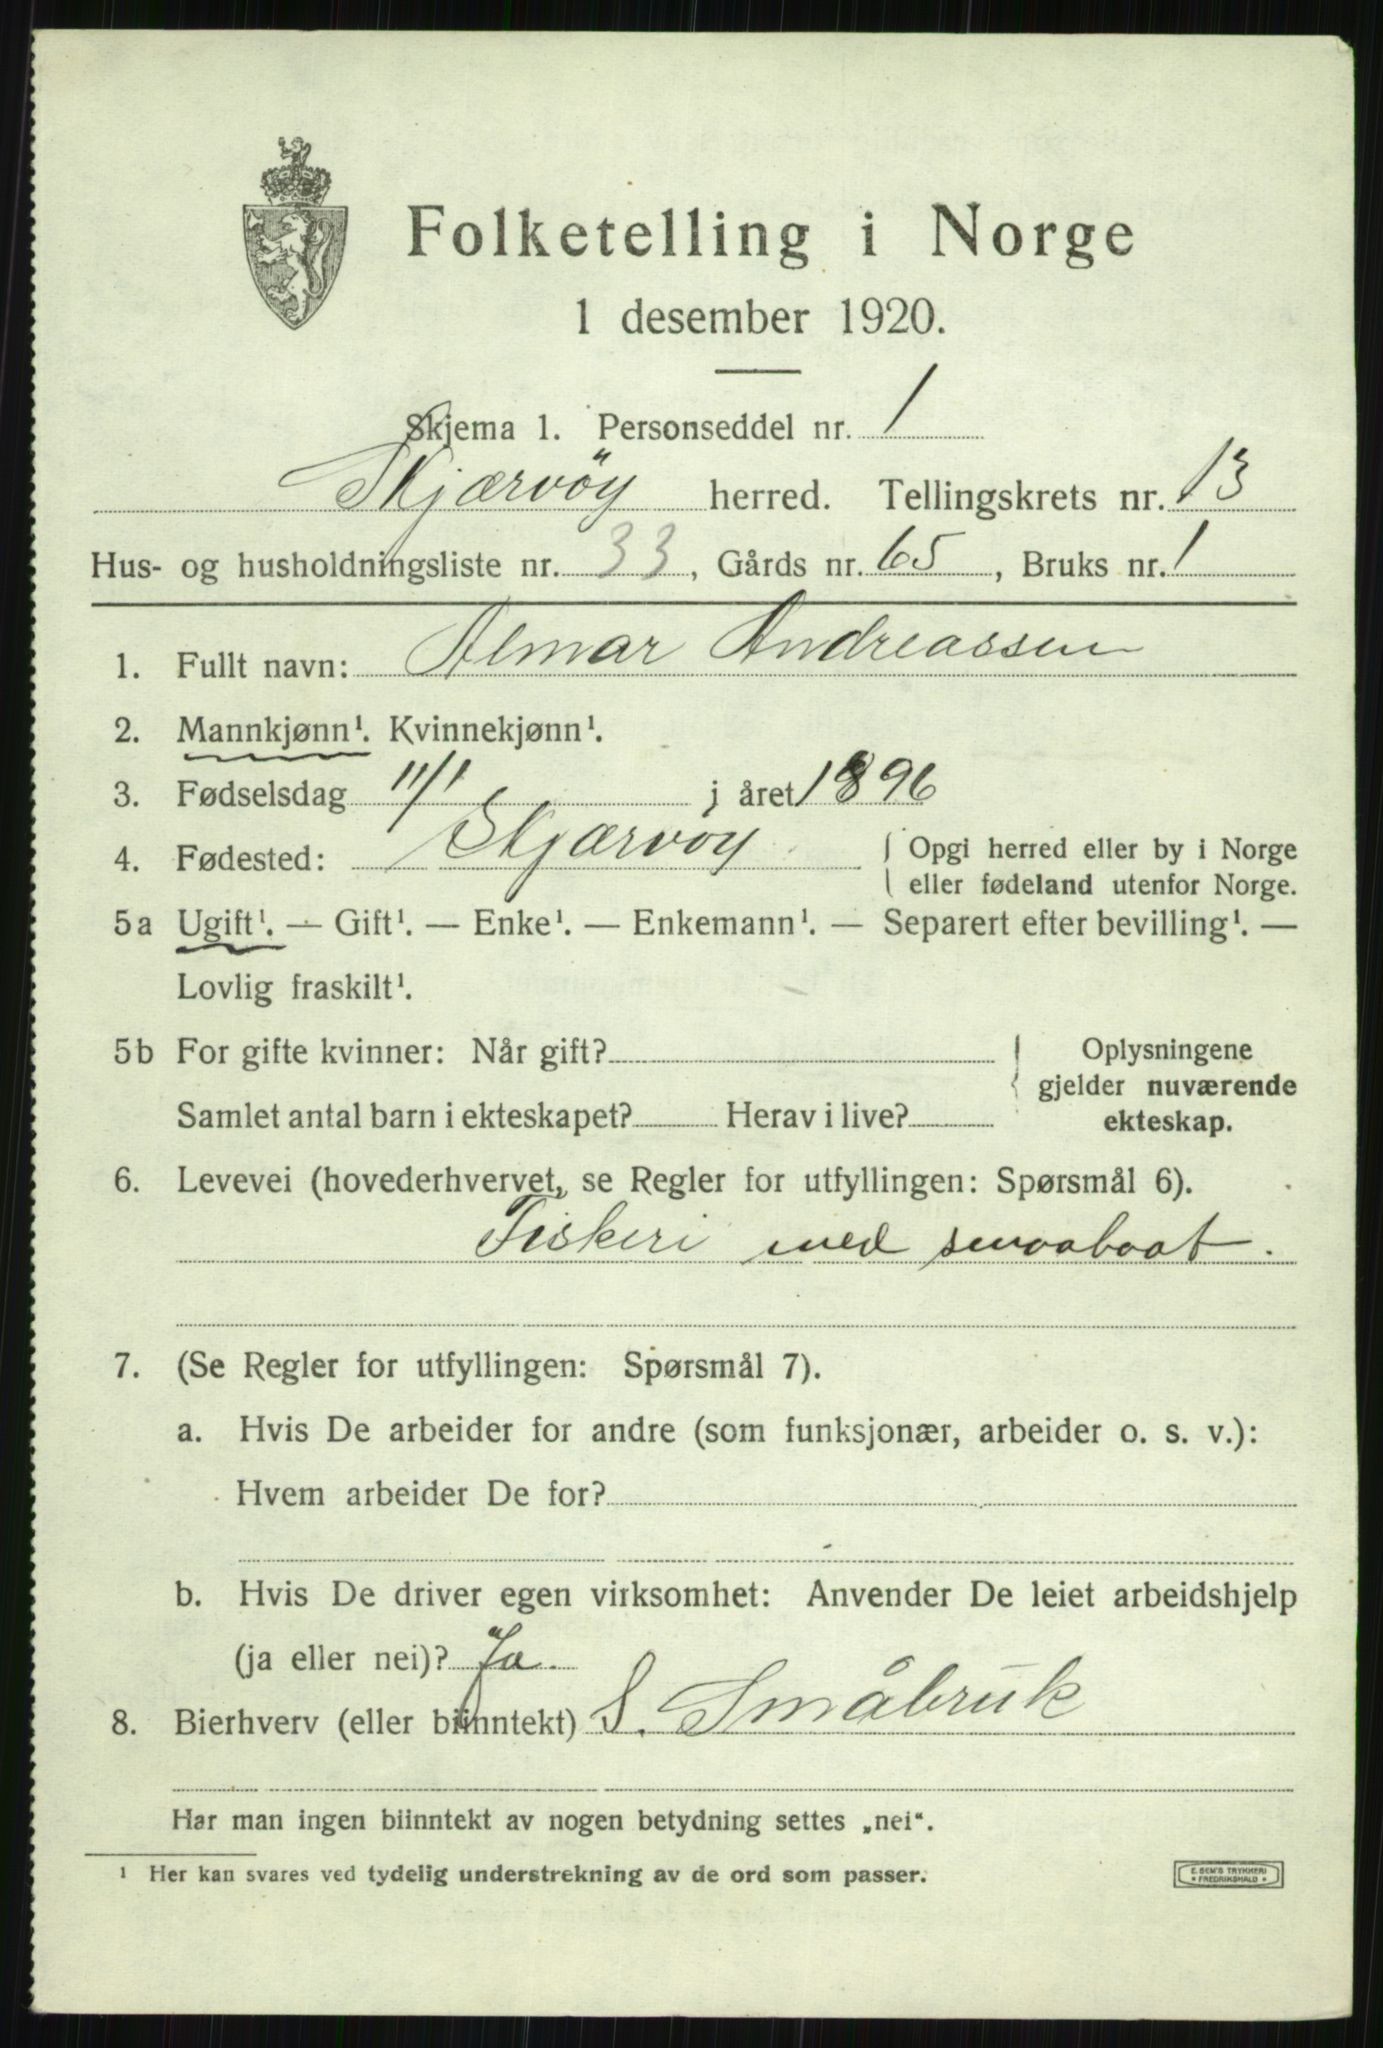 Folketelling i Norge
1 desember 1920.
Skjema 1. Personseddel nr. 1
Skjærvöy herred. Tellingskrets nr. 13
Hus- og husholdningsliste nr. 33, Gårds nr. 65, Bruks nr. 1
1. Fullt navn: Almar Andreassen
2. Mannkjønn¹. Kvinnekjønn¹.
3. Fødselsdag 11/1 i året 1896
4. Fødested: Skjærvöy { Opgi herred eller by i Norge
eller fødeland utenfor Norge.
5a Ugift¹. — Gift¹. — Enke¹. — Enkemann¹. — Separert efter bevilling¹. —
Lovlig fraskilt¹.
5b For gifte kvinner: Når gift? { Oplysningene
gjelder nuværende
Samlet antal barn i ekteskapet? Herav i live? ekteskap.
6. Levevei (hovederhvervet, se Regler for utfyllingen: Spørsmål 6).
Fiskeri med smaabaat.
7. (Se Regler for utfyllingen: Spørsmål 7).
a. Hvis De arbeider for andre (som funksjonær, arbeider o. s. v.):
Hvem arbeider De for?
b. Hvis De driver egen virksomhet: Anvender De leiet arbeidshjelp
(ja eller nei)? Ja.
8. Bierhverv (eller biinntekt) S. Småbruk
Har man ingen biinntekt av nogen betydning settes „nei“.
¹ Her kan svares ved tydelig understrekning av de ord som passer.
E. SEM'S TRYKKERI
* FREDRIKSHALD *